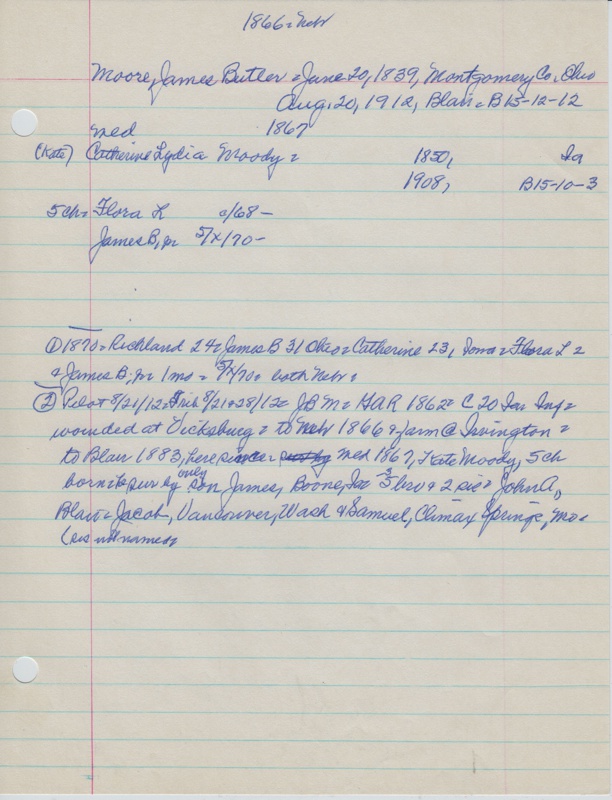 1866 = Nebr
Moore, James Butler = June 20, 1839, Montgomery Co, Ohio
Aug. 20, 1912, Blair = B15-12-12
med 1867
(Kate) Catherine Lydia Moody = 1850, Ia
1908, B15-10-3
5 ch = Flora L a/68 -
James B, jr 5/x/70 -
① 1870 = Richland 24 = James B 31 Ohio = Catherine 23, Iowa = Flora L 2
= James B. jr 1 mo = 5/x/70 = both Nebr =
② Pilot 8/21/12 = Trib 8/21 & 28/12 = JBM = GAR 1862 = C 20 Ia Inf =
wounded at Vicksburg = to Nebr 1866 & farm @ Irvington =
to Blair 1883, here since med 1867, Kate Moody, 5 ch
born = surv by only son, James, Boone, Ia = 3 bro & 2 sis = John A,
Blair = Jacob, Vancouver, Wash & Samuel, Climax Springs, Mo =
(sis not names,